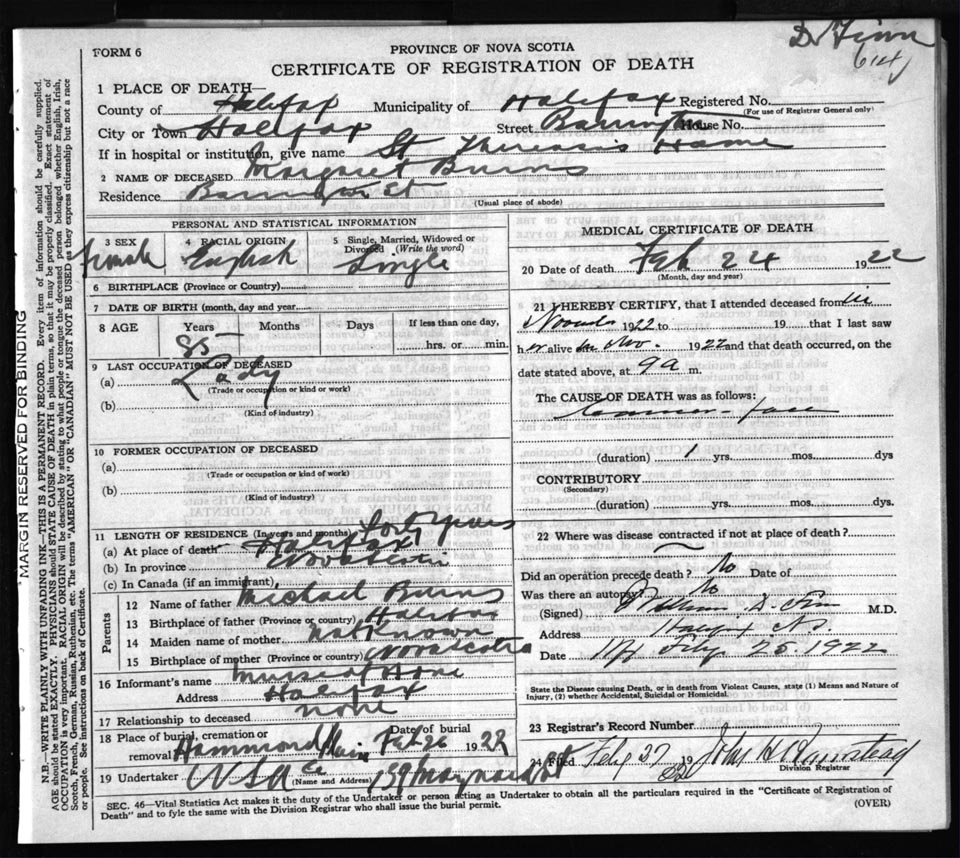 FORM 6
D. Finn
614
PROVINCE OF NOVA SCOTIA
CERTIFICATE OF REGISTRATION OF DEATH
1 PLACE OF DEATH—
County of Halifax Municipality of Halifax Registered No.
(For use of Registrar General only)
City or Town Halifax Street Barrington House No.
If in hospital or institution, give name St Theresa's Home
2 NAME OF DECEASED Margaret Burns
Residence Barrington St
(Usual place of abode)
PERSONAL AND STATISTICAL INFORMATION
3 SEX female
4 RACIAL ORIGIN English
5 Single, Married, Widowed or Divorced (Write the word) Single
6 BIRTHPLACE (Province or Country)
7 DATE OF BIRTH (month, day and year)
8 AGE Years Months Days If less than one day,
85 hrs. or min.
9 LAST OCCUPATION OF DECEASED
(a) Lady
(Trade or occupation or kind or work)
(b)
(Kind of industry)
10 FORMER OCCUPATION OF DECEASED
(a)
(Trade or occupation or kind of work)
(b)
(Kind of industry)
11 LENGTH OF RESIDENCE (In years and months)
(a) At place of death
(b) In province Nova Scotia
(c) In Canada (if an immigrant)
Parents
12 Name of father Michael Burns
13 Birthplace of father (Province or country) Halifax
14 Maiden name of mother not Known
15 Birthplace of mother (Province or country) Nova Scotia
16 Informant's name
Address Halifax
17 Relationship to deceased none
18 Place of burial, cremation or removal Hammond Plain Date of burial Feb 26 1922
19 Undertaker (Name and Address) 159 Maynard St
MEDICAL CERTIFICATE OF DEATH
20 Date of death Feb 24 1922
(Month, day and year)
21 I HEREBY CERTIFY, that I attended deceased from
1922 to 19 that I last saw
her alive in Nov. 1922 and that death occurred, on the
date stated above, at 9 a m.
The CAUSE OF DEATH was as follows:
Cancer - face
(duration) 1 yrs. mos. dys
CONTRIBUTORY
(Secondary)
(duration) yrs. mos. dys.
22 Where was disease contracted if not at place of death?
Did an operation precede death? No Date of
Was there an autopsy? No
(Signed) William D. Finn M.D.
Address Halifax NS
Date 25. 1922
State the Disease causing Death, or in death from Violent Causes, state (1) Means and Nature of
Injury, (2) whether Accidental, Suicidal or Homicidal.
23 Registrar's Record Number
24 Filed 27 19 22
Division Registrar
SEC. 46—Vital Statistics Act makes it the duty of the Undertaker or person acting as Undertaker to obtain all the particulars required in the "Certificate of Registration of
Death" and to fyle the same with the Division Registrar who shall issue the burial permit.
(OVER)
MARGIN RESERVED FOR BINDING
N.B.—WRITE PLAINLY WITH UNFADING INK—THIS IS A PERMANENT RECORD. Every item of information should be carefully supplied.
AGE should be stated EXACTLY. PHYSICIANS should STATE CAUSE OF DEATH in plain terms, so that it may be properly classified. Exact statement of
OCCUPATION is very important. RACIAL ORIGIN will be described by stating to what people or tongue the deceased person belonged whether English, Irish,
Scotch, French, German, Russian, Ruthenian, etc. The terms "AMERICAN" or "CANADIAN" MUST NOT BE USED as they express citizenship but not a race
or people. See instructions on back of Certificate.